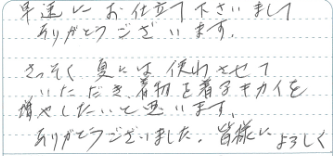 早速にお仕立て下さいまして
ありがとうございます。
さっそく夏には使わさせて
いただき着物を着るキカイを
増やしたいと思います。
ありがとうございました。皆様によろしく